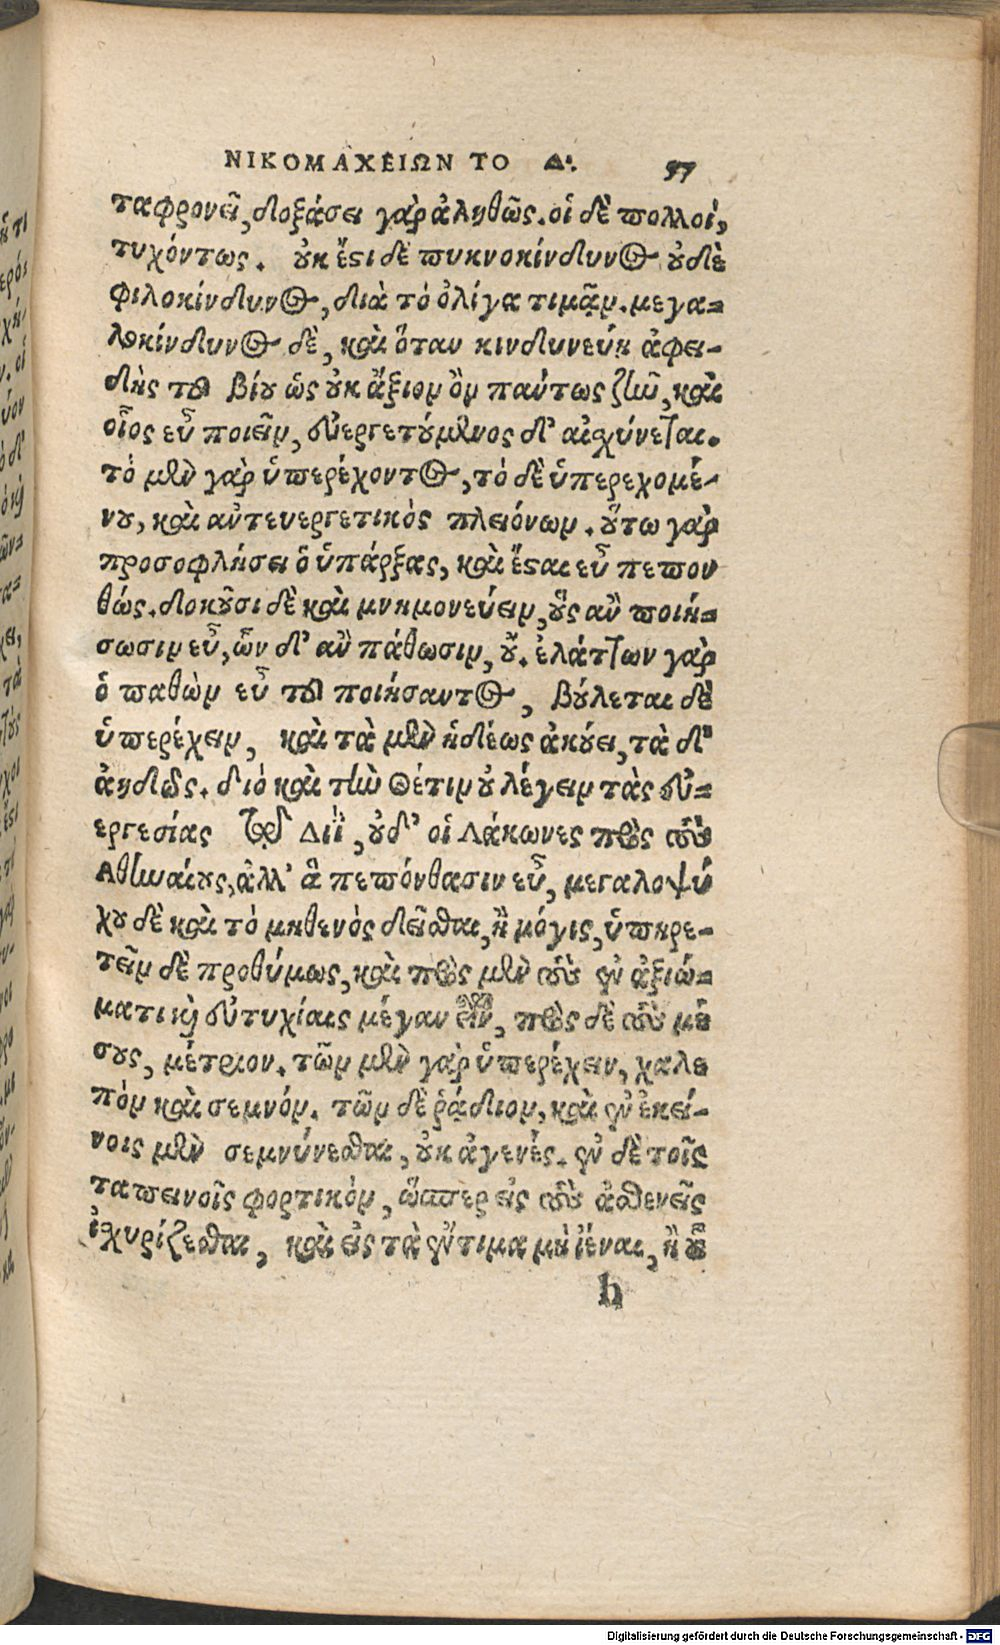 ΝΙΚΟΜΑΧΕΙΩΝ ΤΟ Δ. 57
ταφρονεῖ, δοξάσει γὰρ ἀληθῶς. οἱ δὲ πολλοὶ,
τυχόντως. οὐκ ἔστι δὲ πυκνοκίνδυνος οὐδὲ
φιλοκίνδυνος, διὰ τὸ ὀλίγα τιμᾶν. μεγα=
λοκίνδυνος δὲ, καὶ ὅταν κινδυνεύῃ ἀφει-
δὴς τοῦ βίου ὡς οὐκ ἄξιον ὂν πάντως ζῆν, καὶ
οἷος εὖ ποιεῖν, εὐεργετούμενος δ' αἰσχύνεται.
τὸ μὲν γὰρ ὑπερέχοντος, τὸ δὲ ὑπερεχομέ-
νου, καὶ αὐτευεργετικὸς πλειόνων. οὕτω γὰρ
προσοφλήσει ὁ ὑπάρξας, καὶ ἔσται εὖ πεπον
θώς. δοκοῦσι δὲ καὶ μνημονεύειν, οὓς ἂν ποιή=
σωσιν εὖ, ὧν δ' ἂν πάθωσιν, οὔ. ἐλάττων γὰρ
ὁ παθὼν εὖ τοῦ ποιήσαντος, βούλεται δὲ
ὑπερέχειν, καὶ τὰ μὲν ἡδέως ἀκούει, τὰ δ'
ἀηδῶς. διὸ καὶ τὴν Θέτιν οὐ λέγειν τὰς εὐ=
εργεσίας τῷ Διῒ, οὐδ' οἱ Λάκωνες πρὸς τοὺς
Ἀθηναίους, ἀλλ' ἃ πεπόνθασιν εὖ, μεγαλοψύ
χου δὲ καὶ τὸ μηθενὸς δεῖσθαι, ἢ μόγις, ὑπηρε-
τεῖν δὲ προθύμως, καὶ πρὸς μὲν τοὺς ἐν ἀξιώ=
ματι καὶ εὐτυχίαις μέγαν εἶναι, πρὸς δὲ τοὺς μέ
σους, μέτριον. τῶν μὲν γὰρ ὑπερέχειν, χαλε
πὸν καὶ σεμνόν. τῶν δὲ ῥάδιον, καὶ ἐν ἐκεί-
νοις μὲν σεμνύνεσθαι, οὐκ ἀγενές. ἐν δὲ τοῖς
ταπεινοῖς φορτικὸν, ὥσπερ εἰς τοὺς ἀσθενεῖς
ἰσχυρίζεσθαι, καὶ εἰς τὰ ἔντιμα μὴ ἰέναι, ἢ οὗ
h
Digitalisierung gefördert durch die Deutsche Forschungsgemeinschaft - DFG